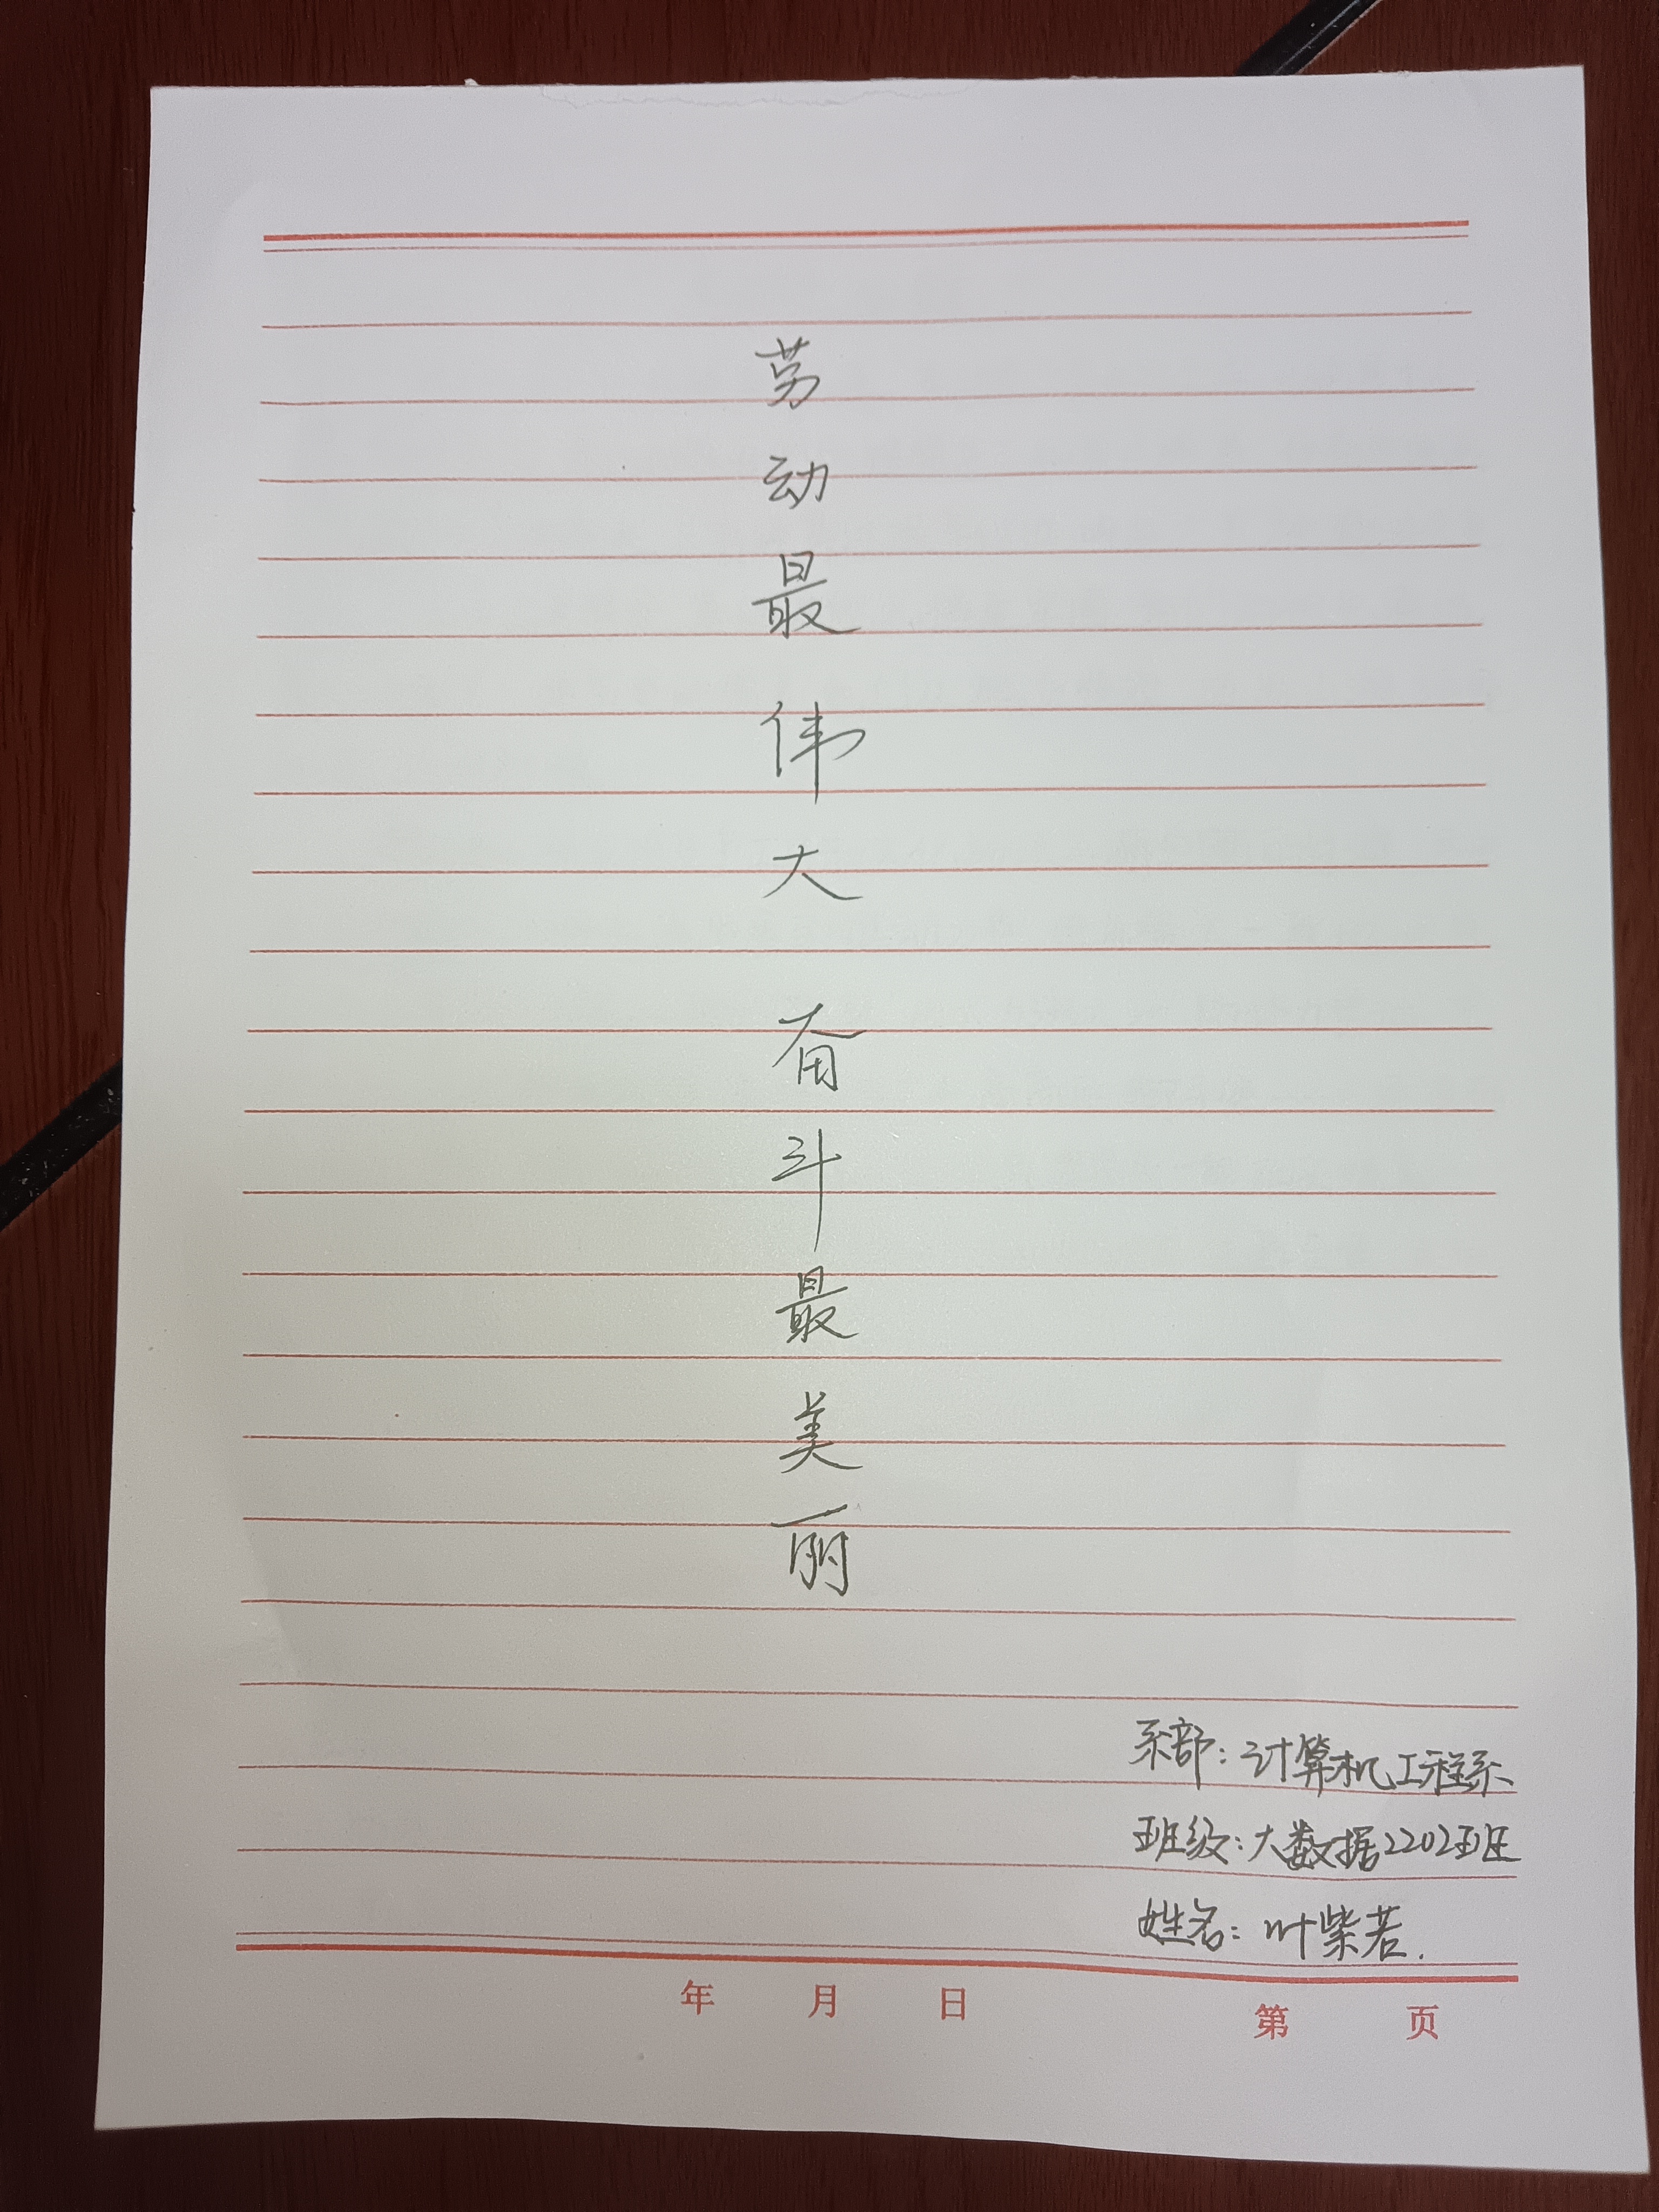 劳动最伟大 奋斗最美丽
系部：计算机工程系
班级：大数据2202班
姓名：叶紫若.
年 月 日 第 页